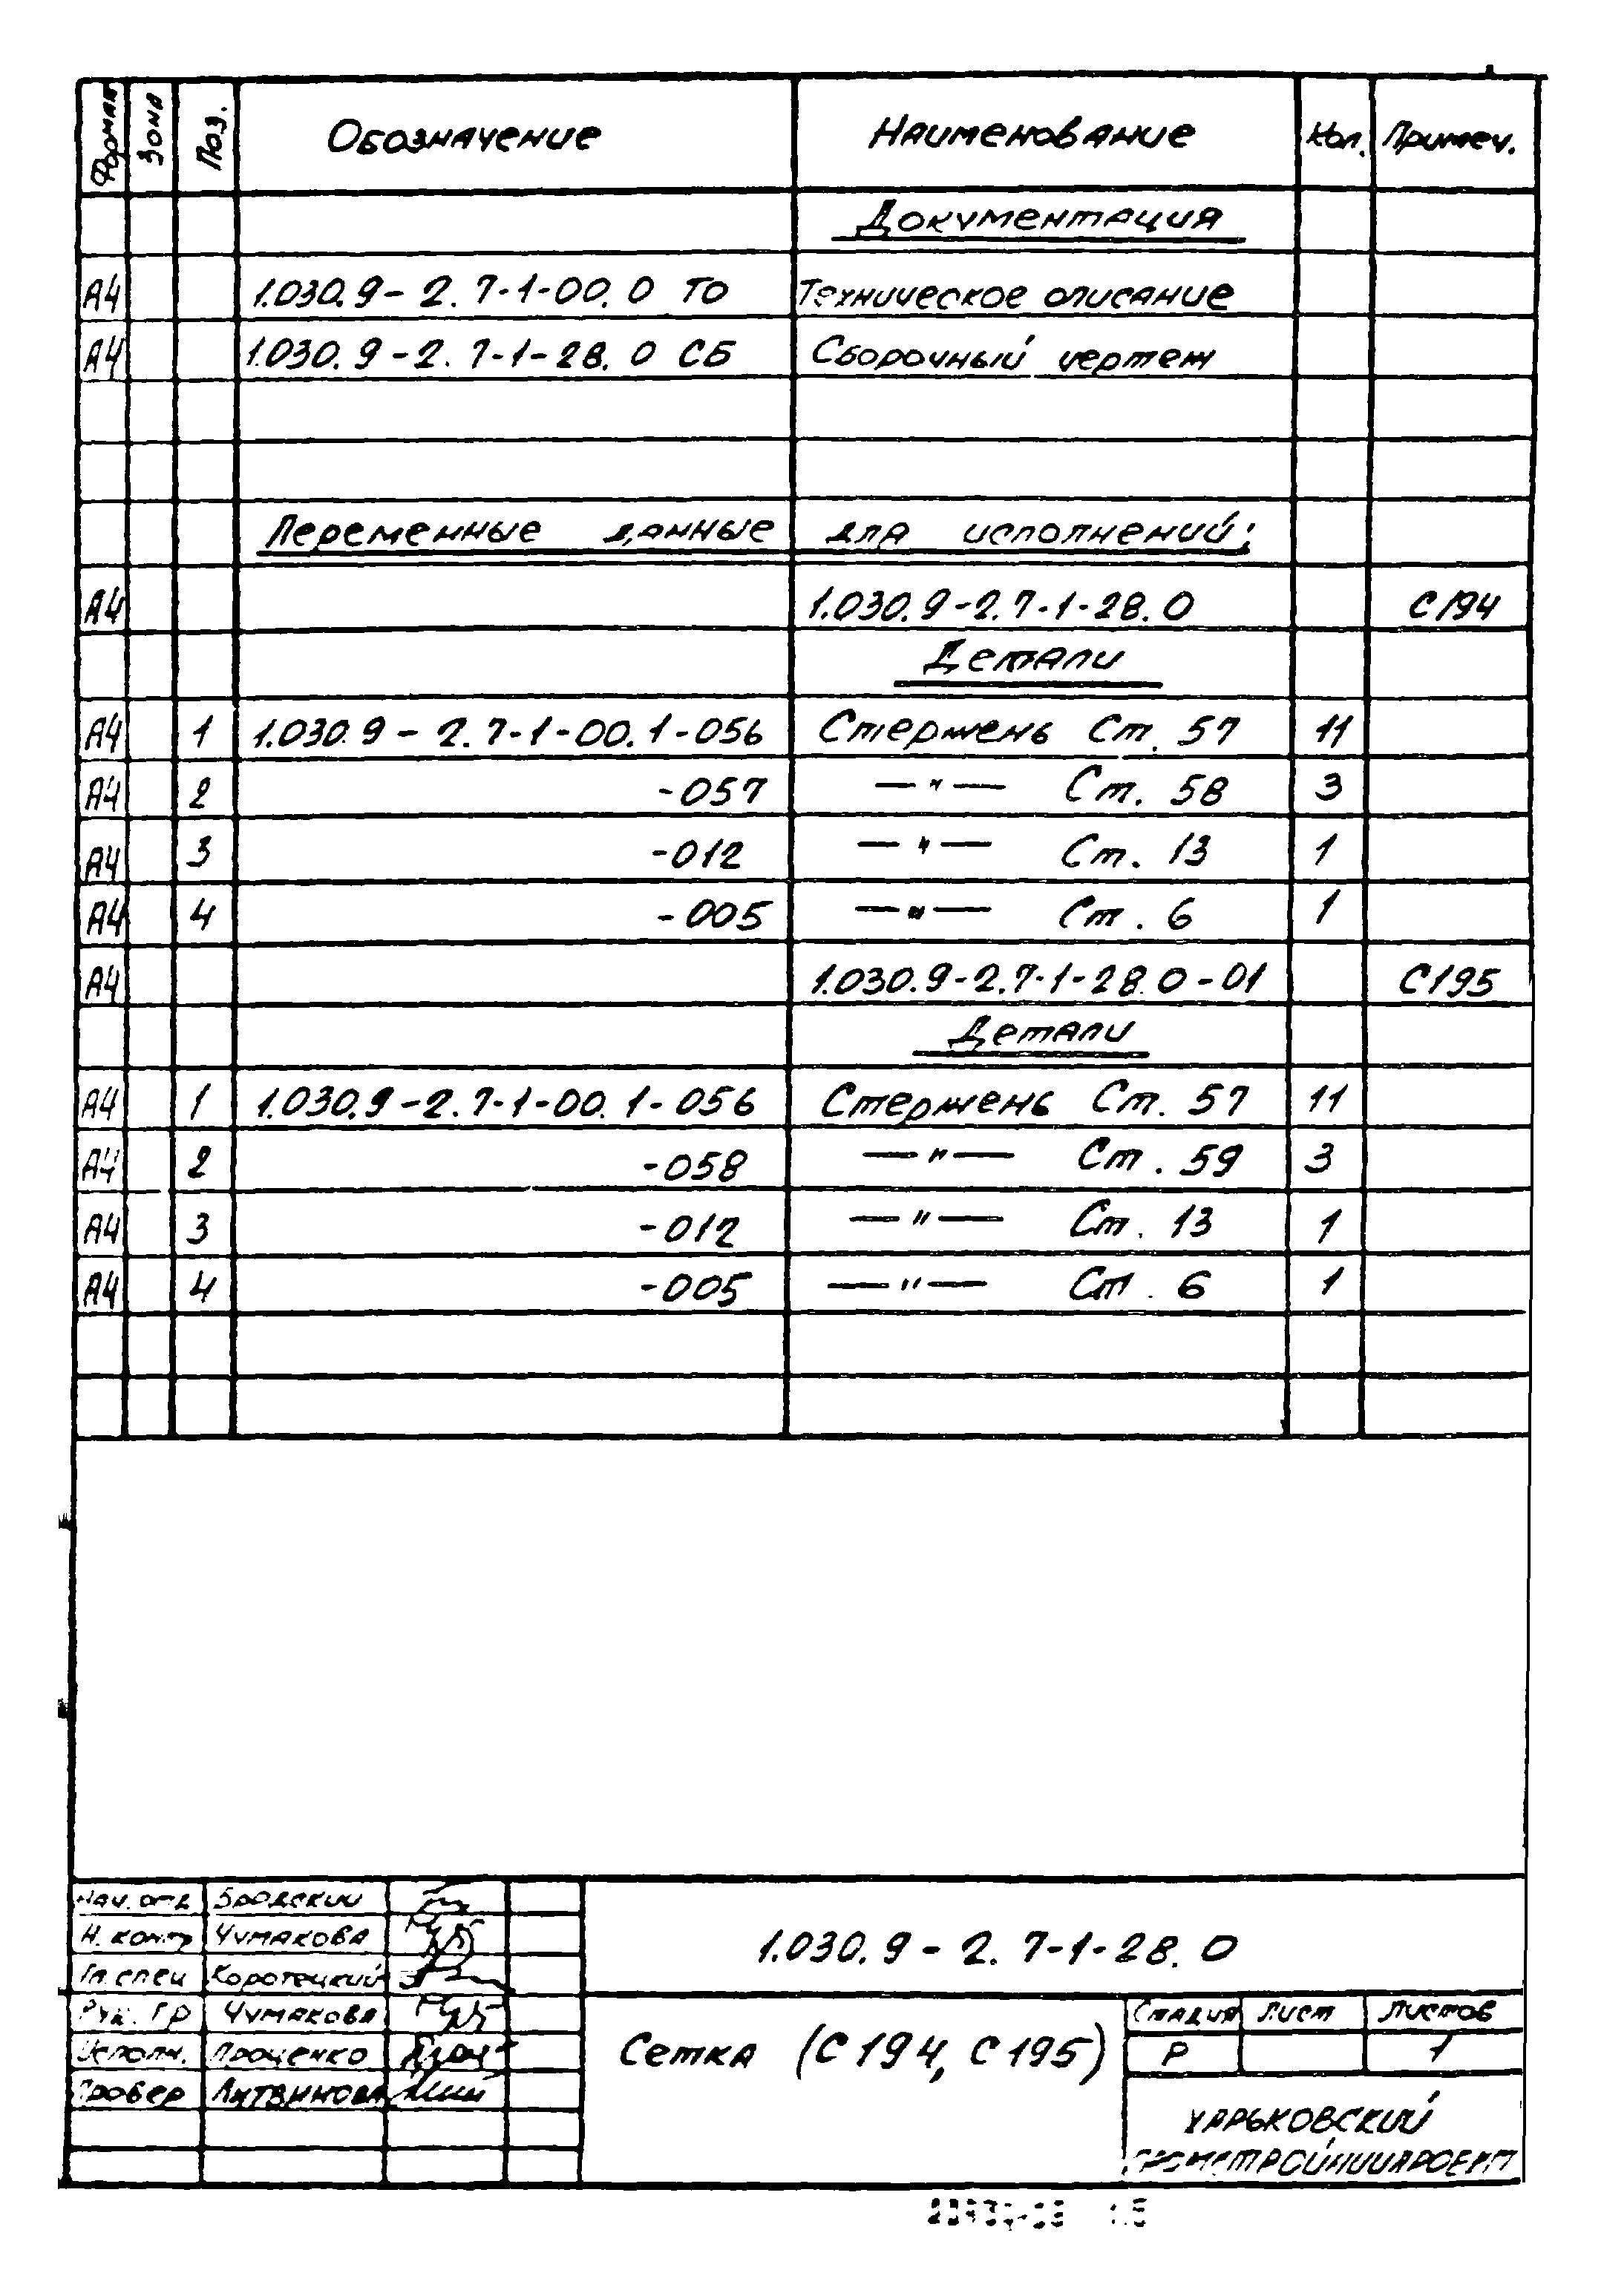 Формат Зона Поз. Обозначение Наименование Кол. Примеч.
Документация
А4 1.030.9-2.7-1-00.0 ТО Техническое описание
А4 1.030.9-2.7-1-28.0 СБ Сборочный чертеж
Переменные данные для исполнений:
А4 1.030.9-2.7-1-28.0 С194
Детали
А4 1 1.030.9-2.7-1-00.1-056 Стержень Ст. 57 11
А4 2 -057 —"— Ст. 58 3
А4 3 -012 —"— Ст. 13 1
А4 4 -005 —"— Ст. 6 1
А4 1.030.9-2.7-1-28.0-01 С195
Детали
А4 1 1.030.9-2.7-1-00.1-056 Стержень Ст. 57 11
А4 2 -058 —"— Ст. 59 3
А4 3 -012 —"— Ст. 13 1
А4 4 -005 —"— Ст. 6 1
Нач. отд Бродский
Н. контр Чумакова
Гл. спец Коротецкий
Рук. ГР Чумакова
Исполн. Проценко
Провер Литвинова
1.030.9-2.7-1-28.0
Сетка (С194, С195)
Стадия Лист Листов
Р 1
ХАРЬКОВСКИЙ
ПРОМСТРОЙНИИПРОЕКТ